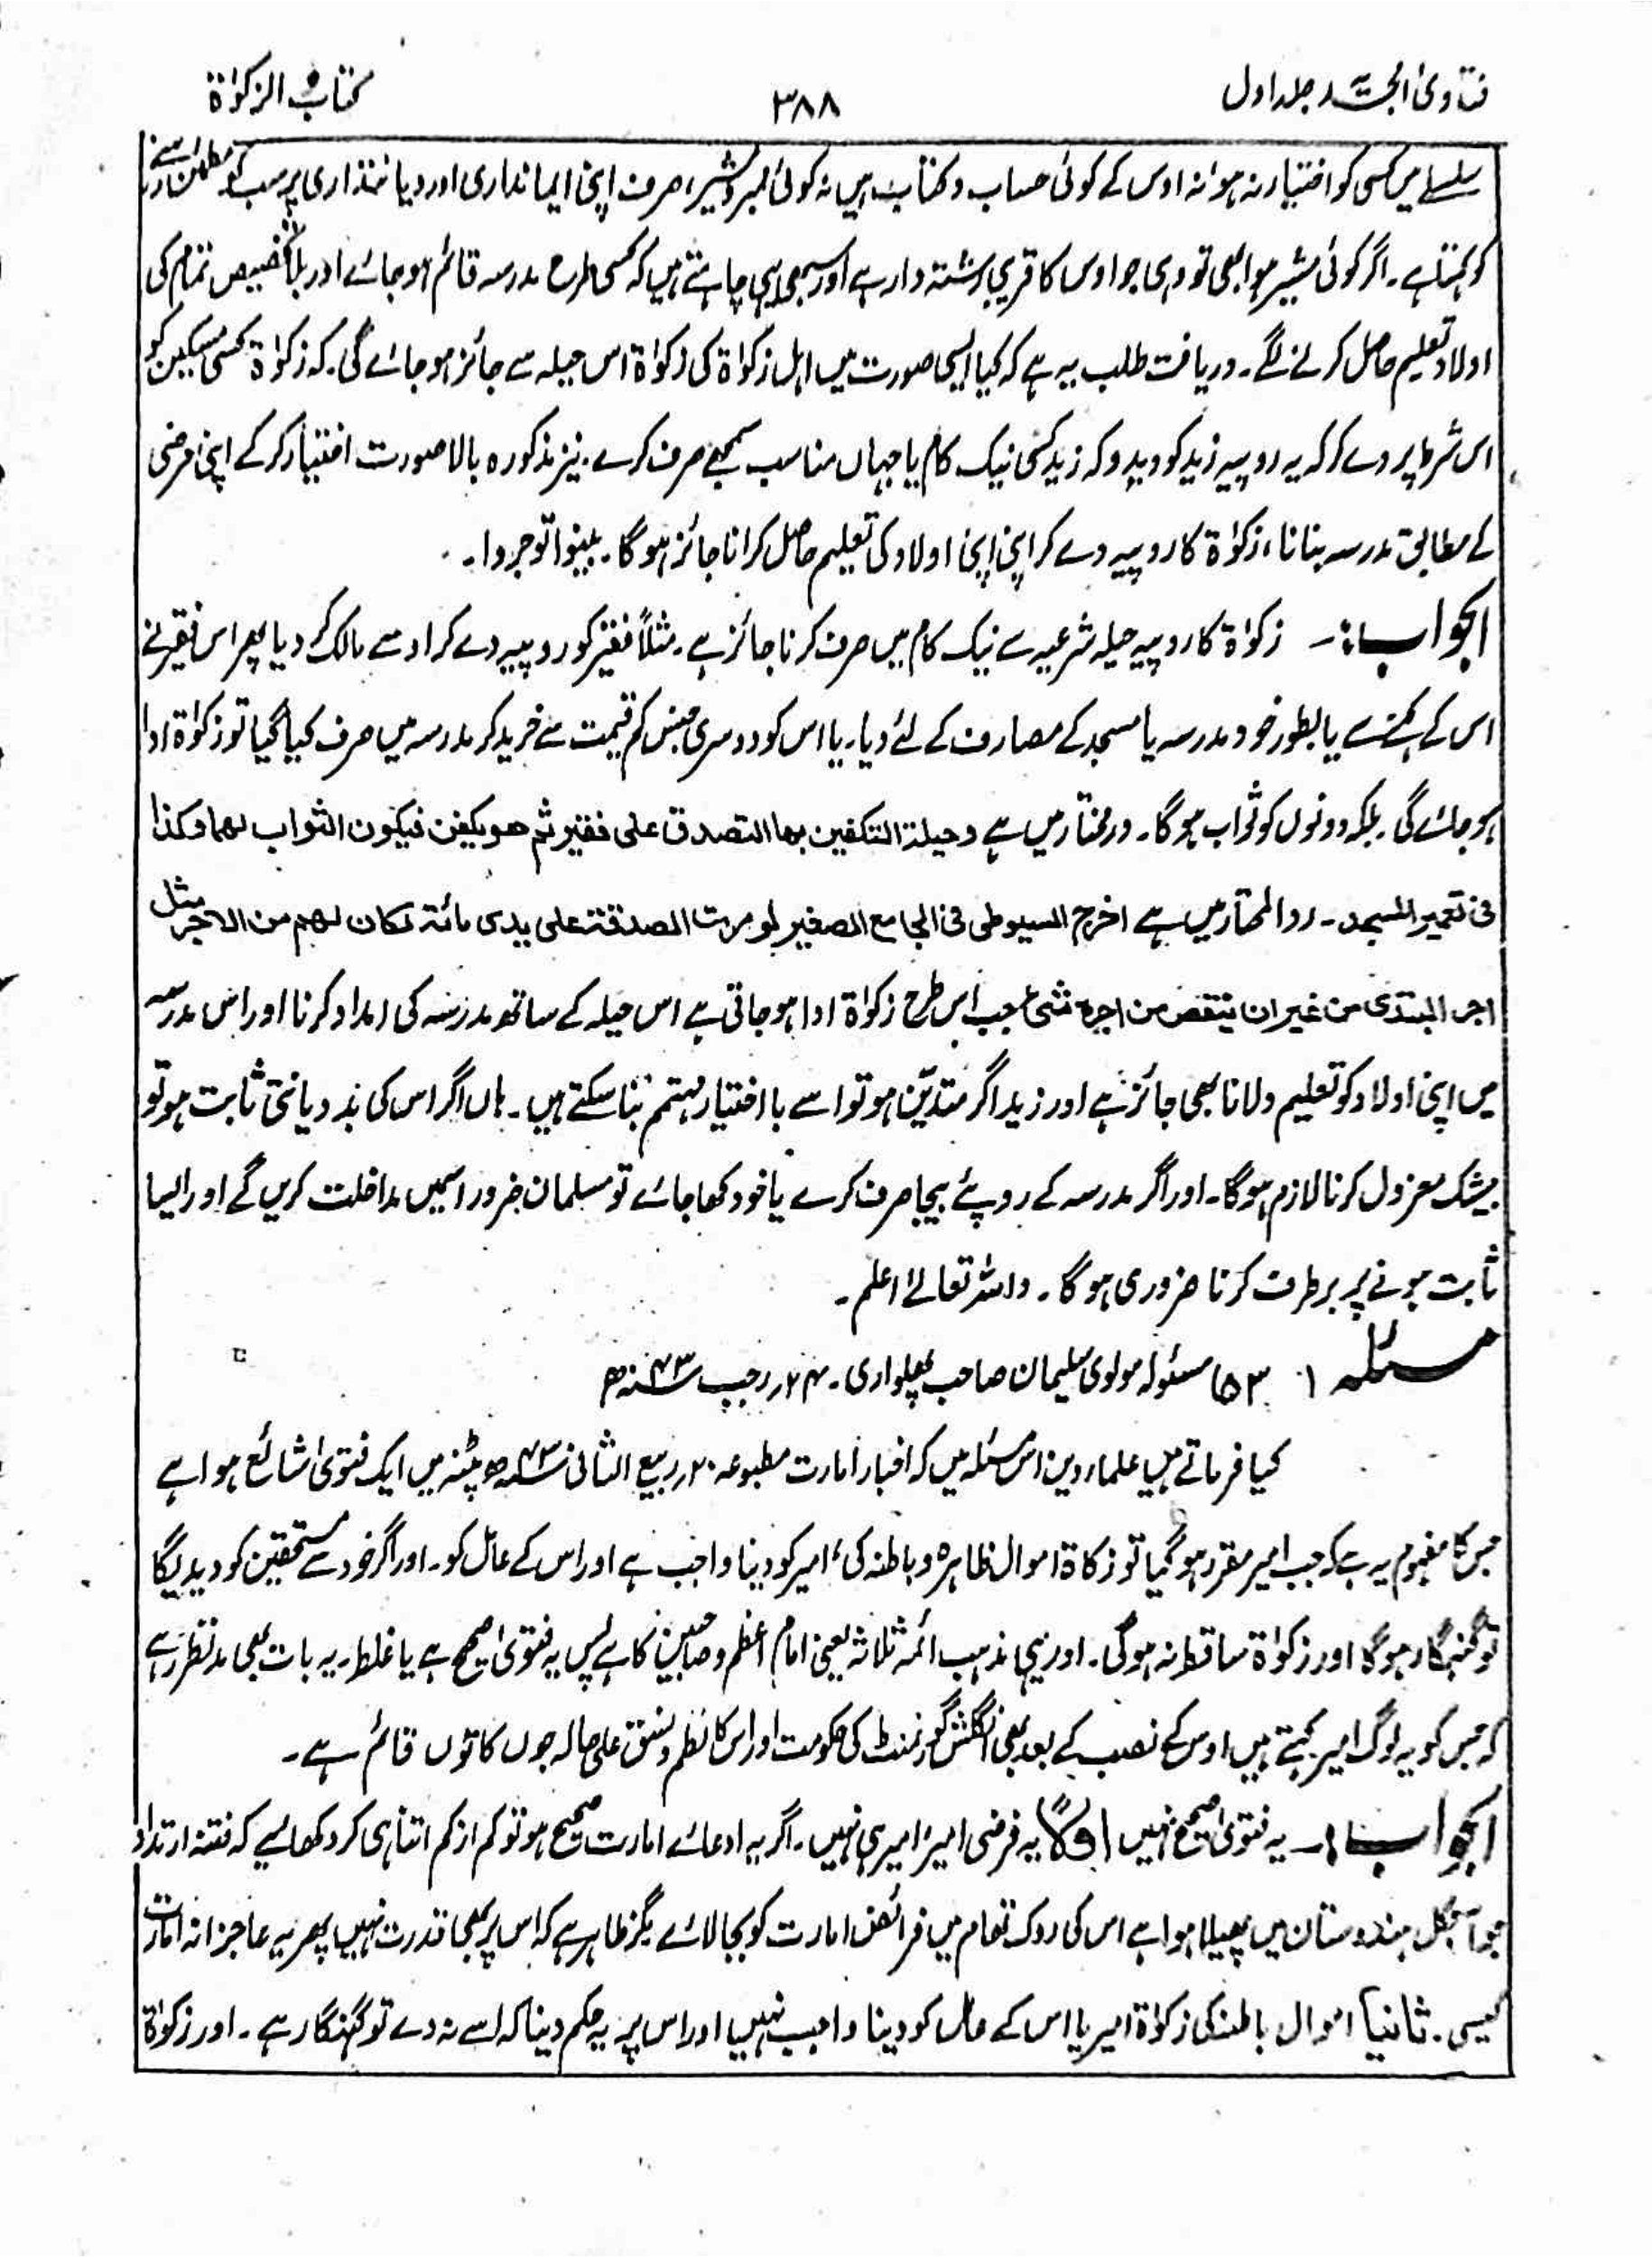 فتاویٰ امجدیہ جلد اول
۳۸۸
کتاب الزکوٰۃ
سلسلے میں کسی کو اختیار نہ ہوا نہ اوس کے کوئی حساب و کتاب ہیں نہ کوئی ممبر و مشیر، صرف اپنی ایمانداری اور دیانتداری پر سب کو مطمئن رہنے
کو کہتا ہے۔ اگر کوئی مشیر ہوا بھی تو وہی جو اوس کا قریبی رشتہ دار ہے اور سبھی یہی چاہتے ہیں کہ کسی طرح مدرسہ قائم ہو جائے اور بلا تخصیص تمام کی
اولاد تعلیم حاصل کرنے لگے۔ دریافت طلب یہ ہے کہ کیا ایسی صورت میں اہل زکوٰۃ کی زکوٰۃ اس حیلہ سے جائز ہو جائے گی۔ کہ زکوٰۃ کسی مسکین کو
اس شرط پر دے کر کہ یہ روپیہ زید کو دیدو کہ زید کسی نیک کام یا جہاں مناسب سمجھے صرف کرے۔ نیز مذکورہ بالا صورت اختیار کر کے اپنی مرضی
کے مطابق مدرسہ بنانا، زکوٰۃ کا روپیہ دے کر اپنی اپنی اولاد کی تعلیم حاصل کرانا جائز ہوگا۔ بینوا توجروا۔
الجواب:۔ زکوٰۃ کا روپیہ حیلہ شرعیہ سے نیک کام میں صرف کرنا جائز ہے۔ مثلاً فقیر کو روپیہ دے کر اوسے مالک کر دیا پھر اس فقیر نے
اس کے کہنے سے یا بطور خود مدرسہ یا مسجد کے مصارف کے لئے دیا۔ یا اس کو دوسری جنس کم قیمت سے خرید کر مدرسہ میں صرف کیا گیا تو زکوٰۃ ادا
ہو جائے گی۔ بلکہ دونوں کو ثواب ہوگا۔ درمختار میں ہے وحیلۃ التکفین بھا التصدق علی فقیر ثم ھو یکفن فیکون الثواب لھما وکذا
فی تعمیر المسجد۔ ردالمحتار میں ہے اخرج السیوطی فی الجامع الصغیر لو مرت الصدقۃ علی یدی مائۃ لکان لھم من الاجر مثل
اجر المبتدی من غیر ان ینقص من اجرہ شیٔ جب اس طرح زکوٰۃ ادا ہو جاتی ہے اس حیلہ کے ساتھ مدرسہ کی امداد کرنا اور اس مدرسہ
میں اپنی اولاد کو تعلیم دلانا بھی جائز ہے اور زید اگر متدیّن ہو تو اسے با اختیار مہتمم بنا سکتے ہیں۔ ہاں اگر اس کی بددیانتی ثابت ہو تو
بیشک معزول کرنا لازم ہوگا۔ اور اگر مدرسہ کے روپئے بیجا صرف کرے یا خود کھا جائے تو مسلمان ضرور اسمیں مداخلت کریں گے اور ایسا
ثابت ہونے پر برطرف کرنا ضروری ہوگا۔ واللہ تعالےٰ اعلم۔
مسئلہ ۱ ۵۳ا مسئولہ مولوی سلیمان صاحب پھلواری۔ ۲۴؍ رجب ۴۳ھ
کیا فرماتے ہیں علماء دین اس مسئلہ میں کہ اخبار امارت مطبوعہ ۲۰؍ ربیع الثانی ۴۳ھ پٹنہ میں ایک فتویٰ شائع ہوا ہے
جس کا مفہوم یہ ہے کہ جب امیر مقرر ہو گیا تو زکاۃ اموال ظاہرہ و باطنہ کی، امیر کو دینا واجب ہے اور اس کے عامل کو۔ اور اگر خود سے مستحقین کو دیدیگا
تو گنہگار ہوگا اور زکوٰۃ ساقط نہ ہوگی۔ اور یہی مذہب ائمہ ثلاثہ یعنی امام اعظم و صاحبین کا ہے پس یہ فتویٰ صحیح ہے یا غلط۔ یہ بات بھی مدنظر رہے
کہ جس کو یہ لوگ امیر کہتے ہیں اوس کے نصب کے بعد بھی انگلش گورنمنٹ کی حکومت اور اس کا نظم و نسق علی حالہ جوں کا توں قائم ہے۔
الجواب:۔ یہ فتویٰ صحیح نہیں اولاً یہ فرضی امیر، امیر ہی نہیں۔ اگر یہ ادعائے امارت صحیح ہو تو کم از کم اتنا ہی کر دکھائے کہ فتنہ ارتداد
جو آجکل ہندوستان میں پھیلا ہوا ہے اس کی روک تھام میں فرائض امارت کو بجا لائے مگر ظاہر ہے کہ اس پر بھی قدرت نہیں پھر یہ عاجزانہ امارت
کیسی۔ ثانیاً اموال باطنہ کی زکوٰۃ امیر یا اس کے عامل کو دینا واجب نہیں اور اس پر یہ حکم دینا کہ اسے نہ دے تو گنہگار ہے۔ اور زکوٰۃ